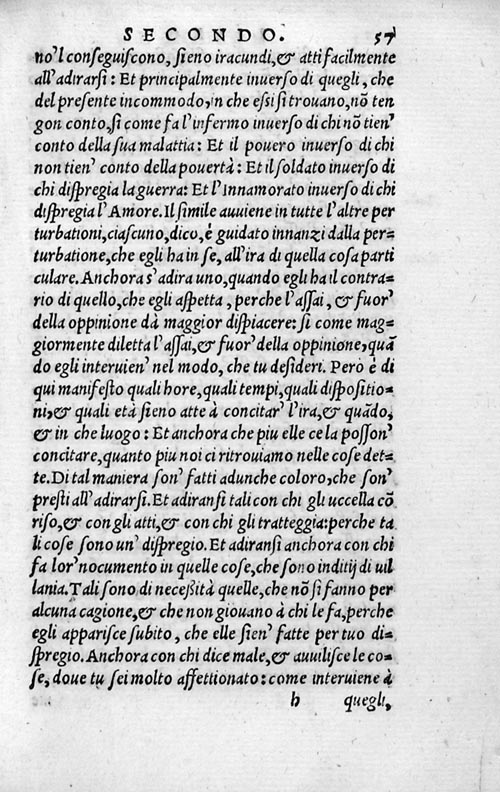 SECONDO. 57
no'l conseguiscono, sieno iracundi, & atti facilmente
all'adirarsi: Et principalmente inverso di quegli, che
del presente incommodo, in che essi si trovano, nõ ten
gon conto, si come fa l'infermo inverso di chi nõ tien'
conto della sua malattia: Et il povero inverso di chi
non tien' conto della povertà: Et il soldato inverso di
chi dispregia la guerra: Et l'Innamorato inverso di chi
dispregia l'Amore. Il simile auuiene in tutte l'altre per
turbationi, ciascuno, dico, è guidato innanzi dalla per-
turbatione, che egli ha in se, all'ira di quella cosa parti
culare. Anchora s'adira uno, quando egli ha il contra-
rio di quello, che egli aspetta, perche l'assai, & fuor'
della oppinione dà maggior dispiacere: si come mag-
giormente diletta l'assai, & fuor' della oppinione, quã
do egli intervien' nel modo, che tu desideri. Però è di
qui manifesto quali hore, quali tempi, quali dispositio-
ni, & quali età sieno atte à concitar' l'ira, & quãdo,
& in che luogo: Et anchora che piu elle ce la posson'
concitare, quanto piu noi ci ritroviamo nelle cose det-
te. Di tal maniera son' fatti adunche coloro, che son'
presti all'adirarsi. Et adiransi tali con chi gli uccella cõ
riso, & con gli atti, & con chi gli tratteggia: perche ta
li cose sono un' dispregio. Et adiransi anchora con chi
fa lor' nocumento in quelle cose, che sono inditij di uil
lania. Tali sono di necessità quelle, che nõ si fanno per
alcuna cagione, & che non giovano à chi le fa, perche
egli apparisce subito, che elle sien' fatte per tuo di-
spregio. Anchora con chi dice male, & auuilisce le co-
se, doue tu sei molto affettionato: come interviene à
h quegli,